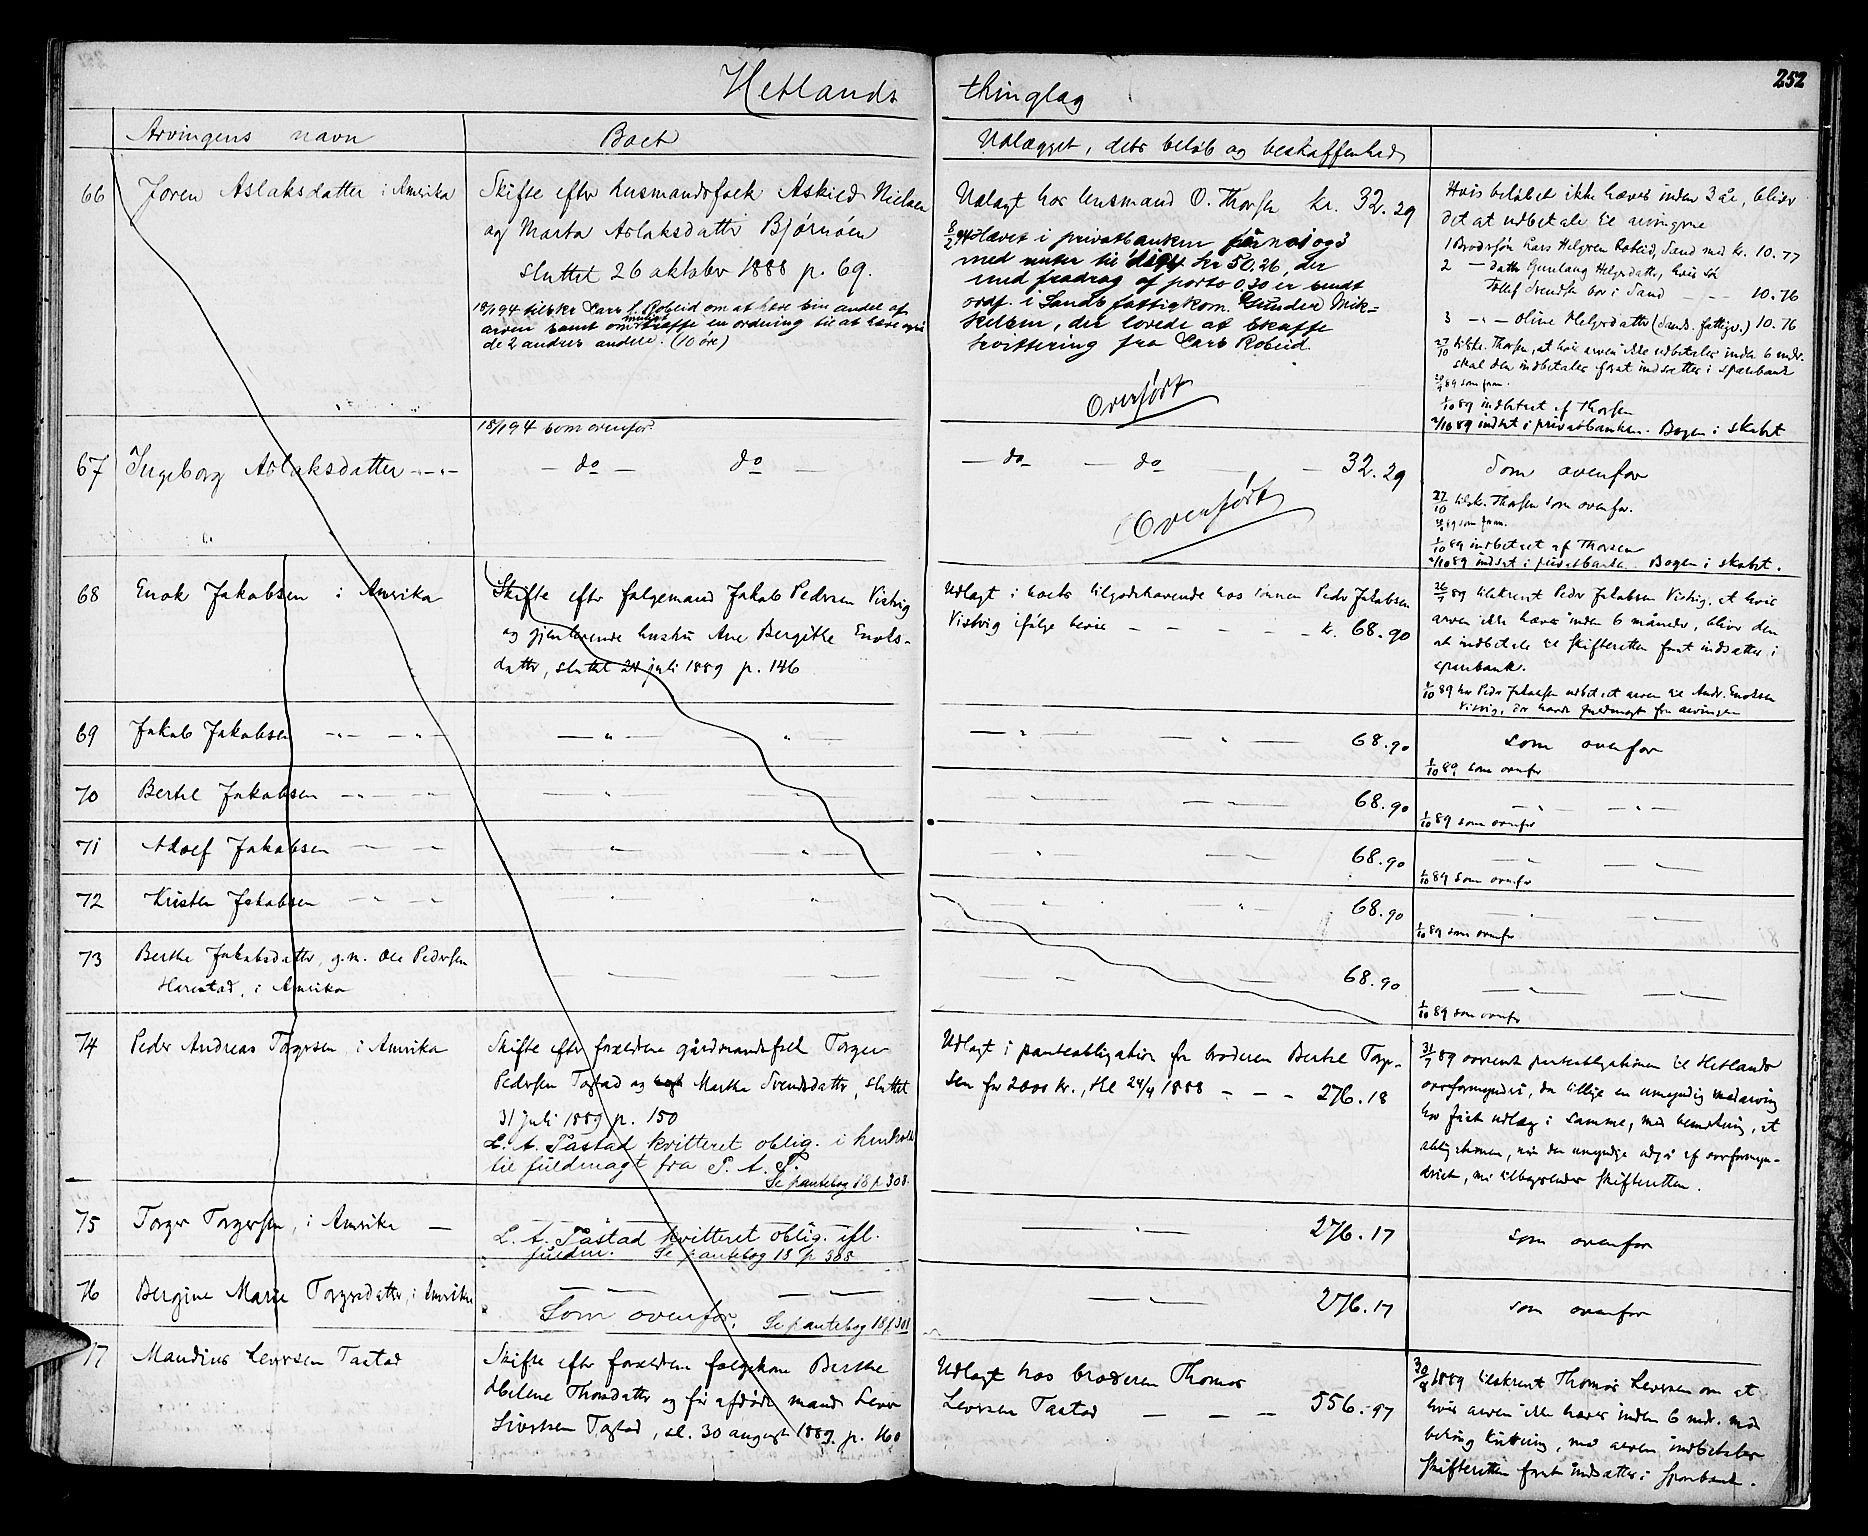 252
Hetlands thinglag
Arvingens navn
Boet
Udlægget, dets beløb og beskaffenhed
66 Joren Aslaksdatter i Amerika
Skifte efter husmandsfolk Askild Nielsen
og Marta Aslaksdatter Bjørnøen
sluttet 26 oktober 1888 p. 69.
18/1 94 tilskr. Lars H. Robeid om at hæve sin andel af
arven samt om muligt træffe en ordning til at hæve også
de 2 andres andele. (10 øre)
Udlagt hos lensmand O. Thorsen kr. 32.29
8/2 94 Hævet i privatbanken
med renter til kr 50.26, der
med fradrag af porto 0.30 er sendt
ordf. i Sands fattigkom. Gunder Mik-
kelsen, der lovede at skaffe
kvittering fra Lars Robeid.
Overført
Hvis beløbet ikke hæves inden 3 år, bliver
det at udbetale til arvingerne
1 Brodersøn Lars Helgesen Robeid, Sand med kr. 10.77
2 — datter Gunlaug Helgesdatter, hvis søn
Tollef Svendsen bor i Sand — — 10.76
3 — „ — Oline Helgesdatter (Sands fattigv.) 10.76
27/10 tilskr. Thorsen, at hvis arven ikke udbetales inden 6 mndr.
skal den indbetales forat indsættes i sparebank
89 som frem.
1/10 89 indbetalt af Thorsen
2/10 89 indsat i privatbanken. Bogen i skabet
18/1 94 som ovenfor.
67 Ingeborg Aslaksdatter — „ —
— do — do —
— do — do — 32.29
Overført
Som ovenfor
27/10 tilskr. Thorsen som ovenfor.
89 som frem.
1/10 89 indbetalt af Thorsen
2/10 89 indsat i privatbanken. Bogen i skabet.
68 Enok Jakobsen i Amerika
Skifte efter følgemand Jakob Pedersen Vistvig
og gjenlevende hustru Ane Bergithe Enoks-
datter, sluttet 24 juli 1889 p. 146
Udlagt i boets tilgodehavende hos sønnen Peder Jakobsen
Vistvig ifølge bevis — — — — kr. 68.90
26/7 89 tilskrevet Peder Jakobsen Vistvig, at hvis
arven ikke hæves inden 6 måneder, bliver den
at indbetale til skifteretten forat indsættes i
sparebank.
1/10 89 har Peder Jakobsen udbetalt arven til Andr. Enoksen
Vistvig, der havde fuldmagt fra arvingen
69 Jakob Jakobsen — „ — — „ —
— „ — „ —
— „ — „ — 68.90
som ovenfor
1/10 89 som ovenfor
70 Bertel Jakobsen — „ — „ —
— „ — „ —
— „ — — „ — 68.90
— „ — — „ —
1/10 89 som ovenfor
71 Adolf Jakobsen — „ — „
— „ — „ —
— „ — — „ — 68.90
— „ — — „ —
1/10 89 som ovenfor
72 Kristen Jakobsen — „ — „
— „ — „ —
— „ — — „ — 68.90
— „ — — „ —
1/10 89 som ovenfor
73 Berthe Jakobsdatter, g.m. Ole Pedersen
Harestad, i Amerika
— „ — „ —
— „ — 68.90
— „ — — „ —
1/10 89 som ovenfor
74 Peder Andreas Torgersen, i Amerika
Skifte efter forældrene gårdmandsfolk Torger
Pedersen Tastad og Marthe Svendsdatter, sluttet
31 juli 1889 p. 150
L. A. Tastad kvitteret oblig. i henhold
til fuldmagt fra P. A. T.
Se pantebog 18 p 308.
Udlagt i panteobligation fra broderen Bertel Torger-
sen for 2000 kr., thl 24/4 1888 — — — 276.18
31/7 89 oversendt panteobligationen til Hetlands
overformynderi, da tillige en umyndig medarving
har fået udlæg i samme, med bemerkning, at
obligationen, når den umyndige udgår af overformyn-
deriet, må tilbagesendes skifteretten.
75 Torger Torgersen, i Amerika —
L. A. Tastad kvitteret oblig. ifl.
fuldm. Se pantebog 18 p 308
— „ — 276.17
som ovenfor
76 Bergine Marie Torgersdatter, i Amerika
Som ovenfor. Se pantebog 18 p 308
— „ — 276.17
som ovenfor
77 Mandius Leversen Tastad
Skifte efter forældrene følgekone Berthe
Helene Thomsdatter og før afdøde mand Lever
Sivertsen Tastad, sl. 30 august 1889 p. 160
Udlagt hos broderen Thomas
Leversen Tastad — — — 556.97
30/8 1889 tilskrevet Thomas Leversen om at
hvis arven ikke hæves inden 6 mdr. mod
behørig kvittering, må arven indbetales
skifteretten forat indsættes i sparebank.